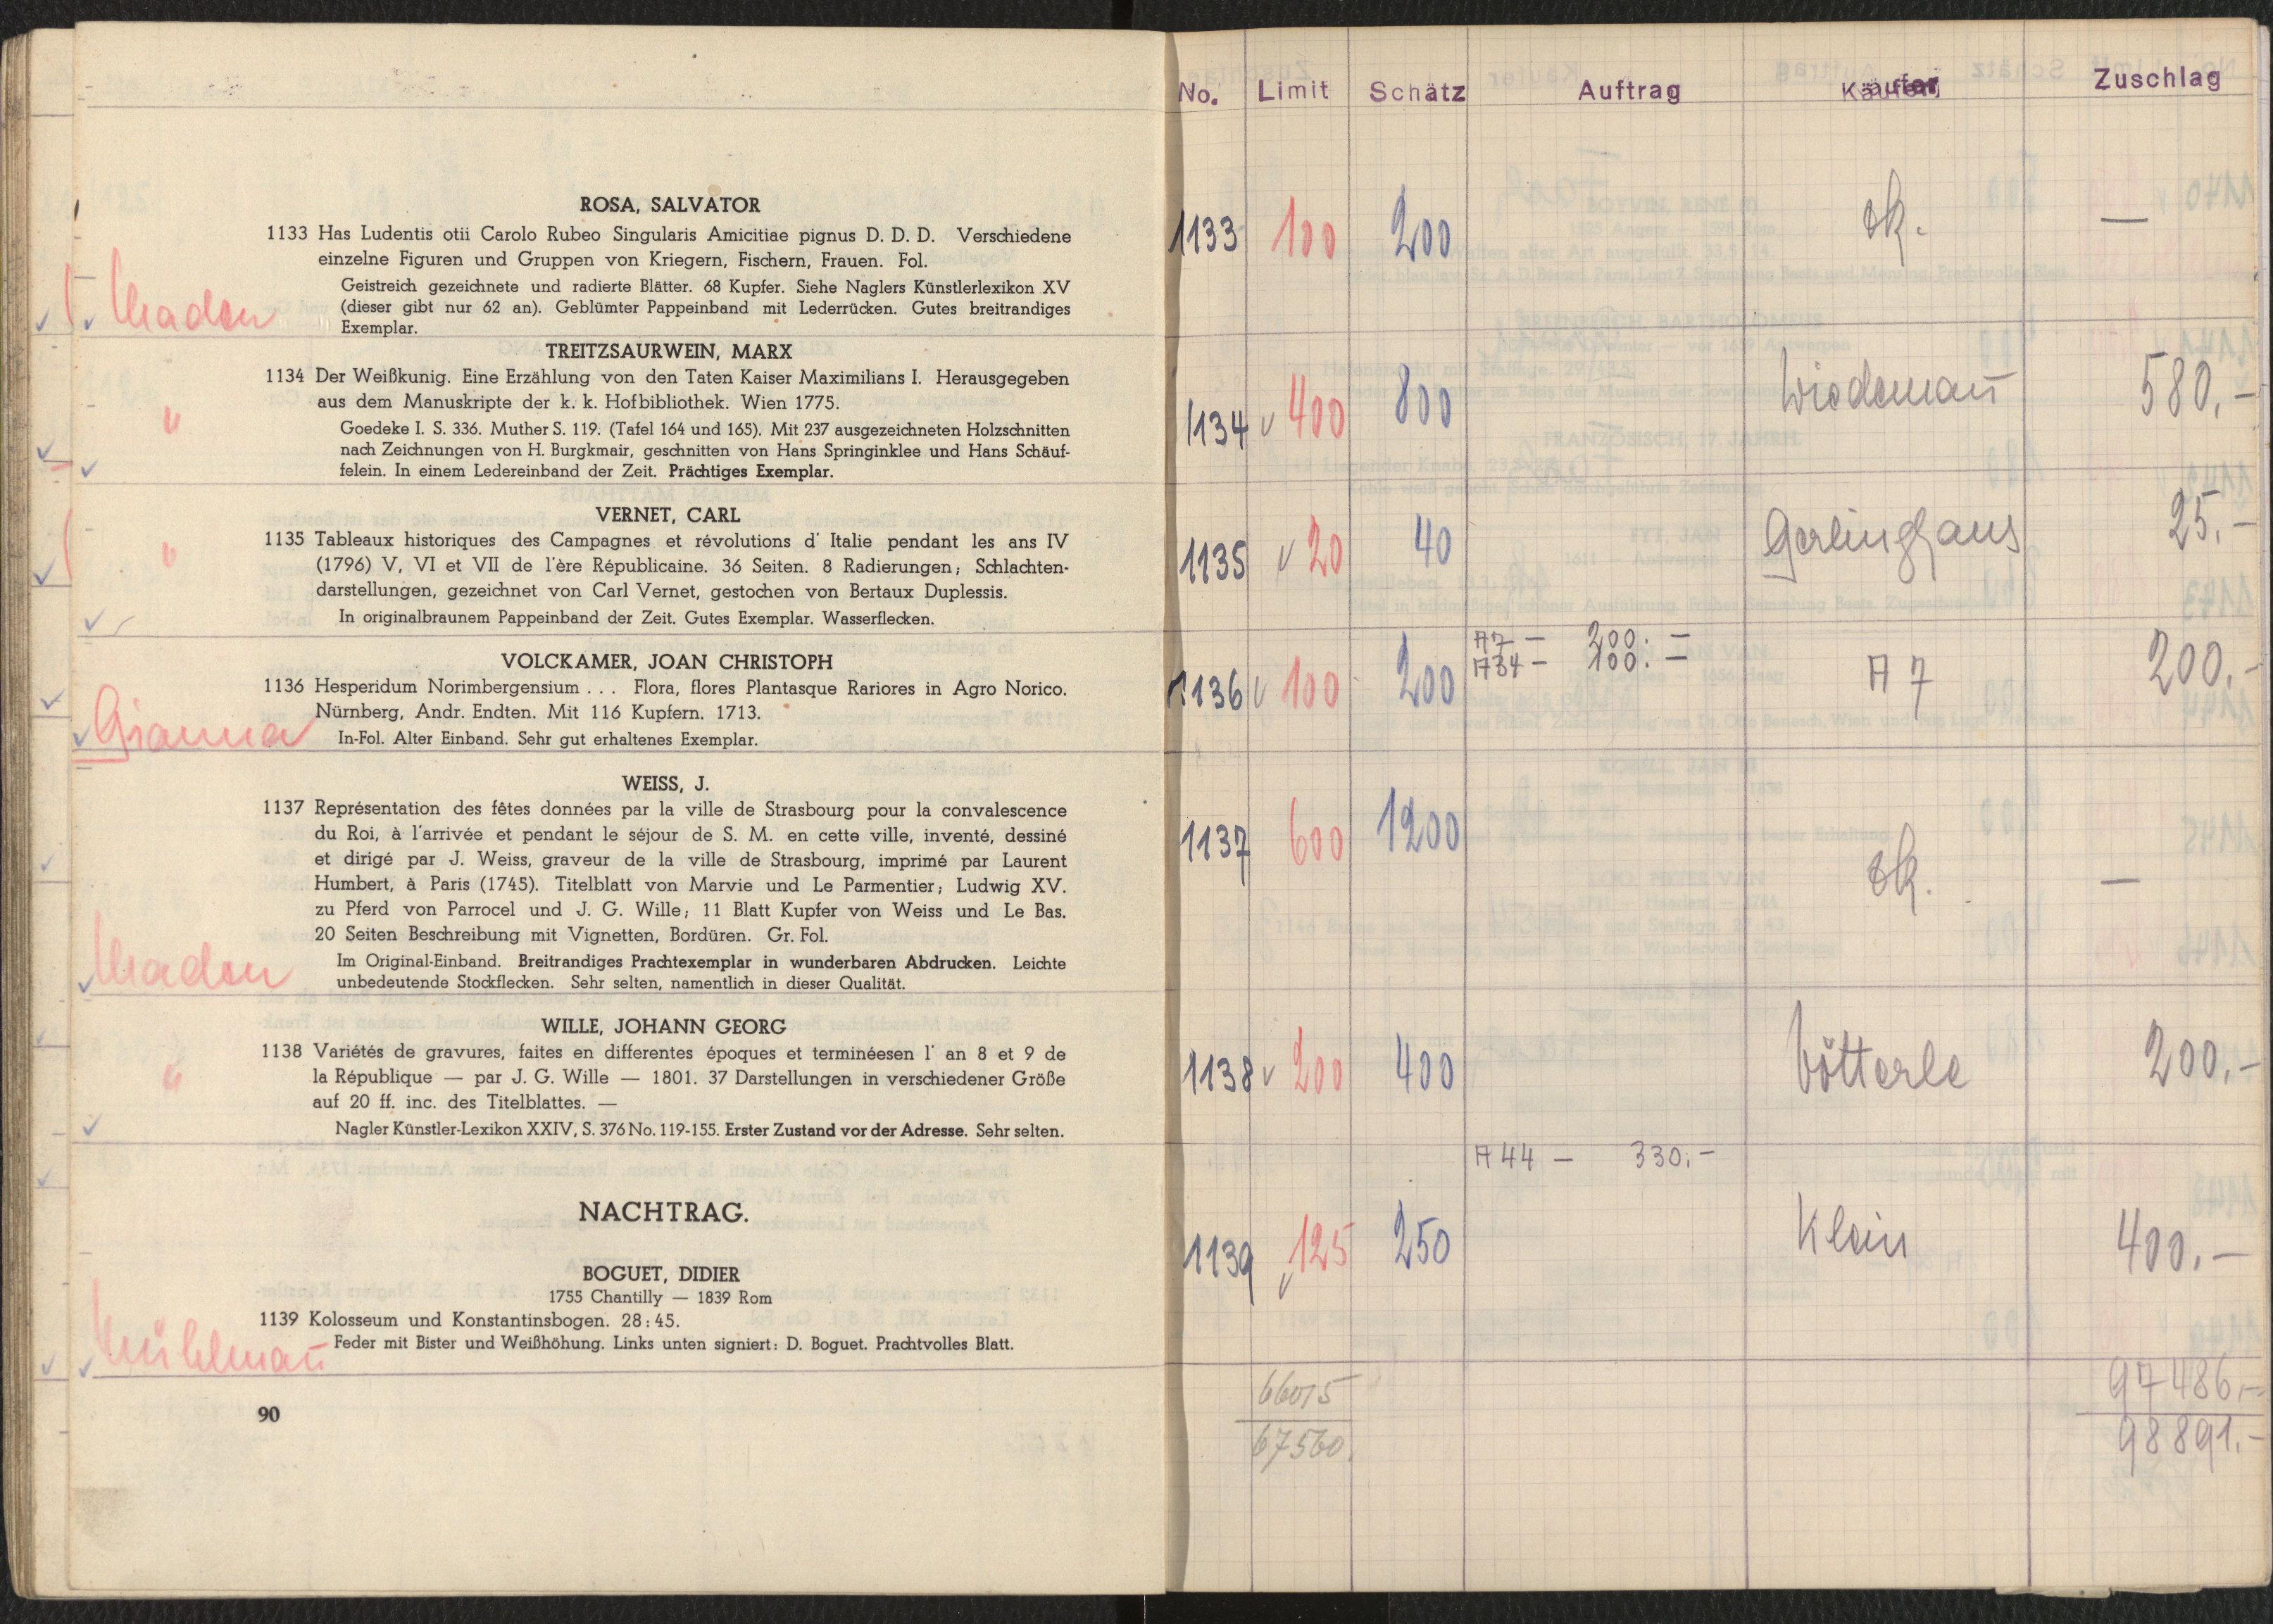 ROSA, SALVATOR
1133 Has Ludentis otii Carolo Rubeo Singularis Amicitiae pignus D. D. D. Verschiedene
einzelne Figuren und Gruppen von Kriegern, Fischern, Frauen. Fol.
Geistreich gezeichnete und radierte Blätter. 68 Kupfer. Siehe Naglers Künstlerlexikon XV
(dieser gibt nur 62 an). Geblümter Pappeinband mit Lederrücken. Gutes breitrandiges
Exemplar.
TREITZSAURWEIN, MARX
1134 Der Weißkunig. Eine Erzählung von den Taten Kaiser Maximilians I. Herausgegeben
aus dem Manuskripte der k. k. Hofbibliothek. Wien 1775.
"
Goedeke I. S. 336. Muther S. 119. (Tafel 164 und 165). Mit 237 ausgezeichneten Holzschnitten
nach Zeichnungen von H. Burgkmair, geschnitten von Hans Springinklee und Hans Schäuf-
felein. In einem Ledereinband der Zeit. Prächtiges Exemplar.
VERNET, CARL
1135 Tableaux historiques des Campagnes et révolutions d' Italie pendant les ans IV
"
(1796) V, VI et VII de l'ère Républicaine. 36 Seiten. 8 Radierungen; Schlachten-
darstellungen, gezeichnet von Carl Vernet, gestochen von Bertaux Duplessis.
In originalbraunem Pappeinband der Zeit. Gutes Exemplar. Wasserflecken.
VOLCKAMER, JOAN CHRISTOPH
1136 Hesperidum Norimbergensium . . . Flora, flores Plantasque Rariores in Agro Norico.
Nürnberg, Andr. Endten. Mit 116 Kupfern. 1713.
In-Fol. Alter Einband. Sehr gut erhaltenes Exemplar.
WEISS, J.
1137 Représentation des fêtes données par la ville de Strasbourg pour la convalescence
du Roi, à l'arrivée et pendant le séjour de S. M. en cette ville, inventé, dessiné
et dirigé par J. Weiss, graveur de la ville de Strasbourg, imprimé par Laurent
Humbert, à Paris (1745). Titelblatt von Marvie und Le Parmentier; Ludwig XV.
zu Pferd von Parrocel und J. G. Wille; 11 Blatt Kupfer von Weiss und Le Bas.
20 Seiten Beschreibung mit Vignetten, Bordüren. Gr. Fol.
Im Original-Einband. Breitrandiges Prachtexemplar in wunderbaren Abdrucken. Leichte
unbedeutende Stockflecken. Sehr selten, namentlich in dieser Qualität.
WILLE, JOHANN GEORG
1138 Variétés de gravures, faites en differentes époques et terminéesen l' an 8 et 9 de
"
la République — par J. G. Wille — 1801. 37 Darstellungen in verschiedener Größe
auf 20 ff. inc. des Titelblattes. —
Nagler Künstler-Lexikon XXIV, S. 376 No. 119-155. Erster Zustand vor der Adresse. Sehr selten.
NACHTRAG.
BOGUET, DIDIER
1755 Chantilly — 1839 Rom
1139 Kolosseum und Konstantinsbogen. 28 : 45.
Feder mit Bister und Weißhöhung. Links unten signiert: D. Boguet. Prachtvolles Blatt.
90
No. Limit Schätz Auftrag Käufer Zuschlag
1133 100 200 —
1134 400 800 Wiedemañ 580.-
1135 20 40 Gerlinghaus 25.-
A7 - 200.-
A34 - 100.-
1136 100 200 A 7 200.-
1137 600 1200 —
1138 200 400 Vötterle 200.-
A44 - 330.-
1139 125 250 Klein 400.-
66015 97486.-
67560. 98891.-